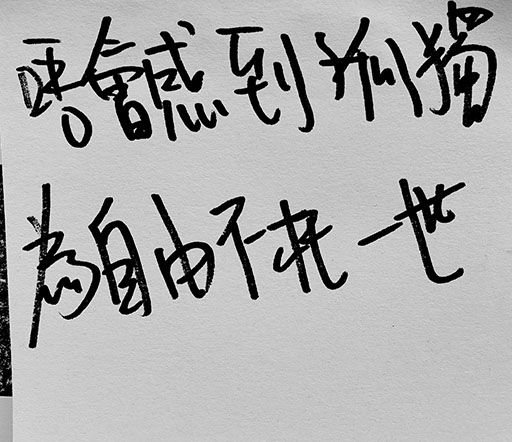 唔會感到孤獨
為自由不枉一世